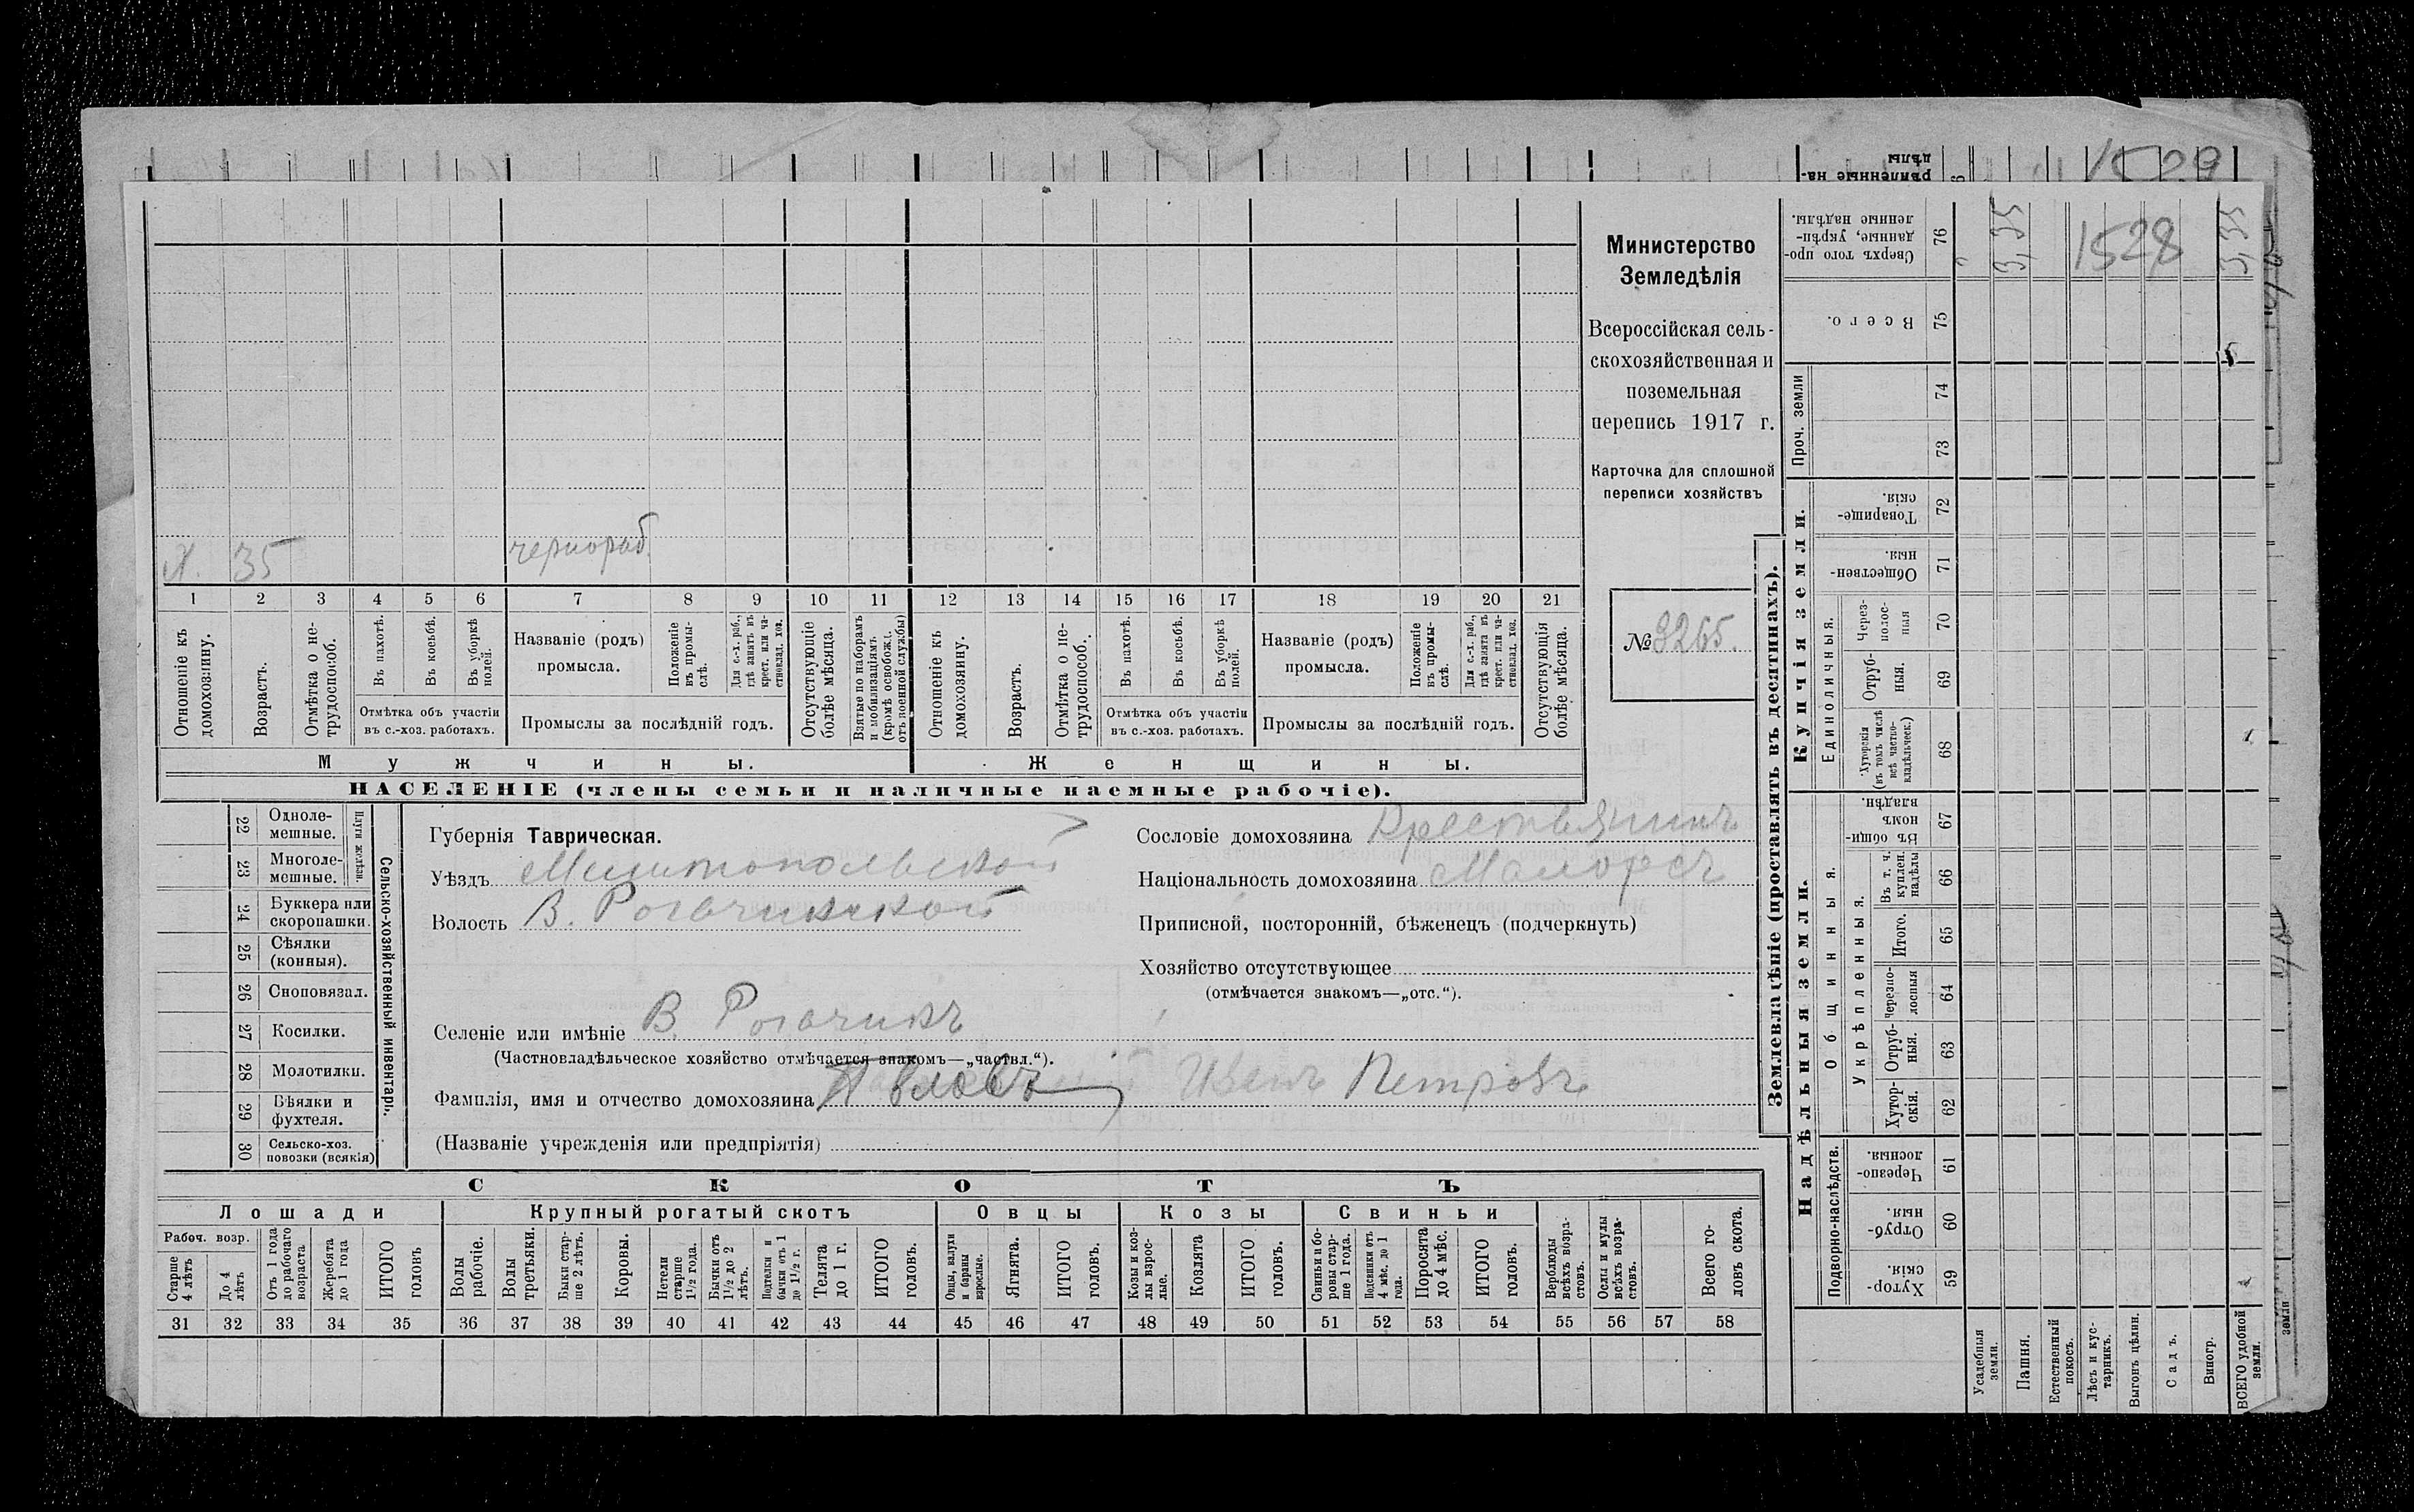 1529
дѣлы
рѣпленные на-
Х. 35 чернораб.
1 2 3 4 5 6 7 8 9 10 11 12 13 14 15 16 17 18 19 20 21
Отношеніе къ домохозяину.
Возрастъ.
Отмѣтка о не-трудоспособ.
Въ пахотѣ.
Въ косьбѣ.
Въ уборкѣ полей.
Отмѣтка объ участіи
въ с.-хоз. работахъ.
Названіе (родъ)
промысла.
Положеніе въ промы-слѣ.
Для с.-х. раб., гдѣ занятъ въ крест. или ча-стновлад. хоз.
Промыслы за послѣдній годъ.
Отсутствующіе болѣе мѣсяца.
Взятые по наборамъ и мобилизаціямъ (кромѣ освобожд. отъ военной службы)
Отношеніе къ домохозяину.
Возрастъ.
Отмѣтка о не-трудоспособ.
Въ пахотѣ.
Въ косьбѣ.
Въ уборкѣ полей.
Отмѣтка объ участіи
въ с.-хоз. работахъ.
Названіе (родъ)
промысла.
Положеніе въ промы-слѣ.
Для с.-х. раб., гдѣ занята въ крест. или ча-стновлад. хоз.
Промыслы за послѣдній годъ.
Отсутствующія болѣе мѣсяца.
Мужчины. Женщины.
НАСЕЛЕНІЕ (члены семьи и наличные наемные рабочіе).
Министерство
Земледѣлія
Всероссійская сель-
скохозяйственная и
поземельная
перепись 1917 г.
Карточка для сплошной
переписи хозяйствъ
№ 3265.
22 Одноле-мешные.
23 Многоле-мешные.
Плуги желѣзн.
24 Буккера или скоропашки.
25 Сѣялки (конныя).
26 Сноповязал.
27 Косилки.
28 Молотилки.
29 Вѣялки и фухтеля.
30 Сельско-хоз. повозки (всякія)
Сельско-хозяйственный инвентарь.
Губернія Таврическая.
Уѣздъ Мелитопольской
Волость В. Рогачикской
Селеніе или имѣніе В. Рогачикъ
(Частновладѣльческое хозяйство отмѣчается знакомъ—„частвл.“).
Фамилія, имя и отчество домохозяина Иванъ Петровъ
(Названіе учрежденія или предпріятія)
Сословіе домохозяина Крестьянинъ
Національность домохозяина Малоросъ
Приписной, посторонній, бѣженецъ (подчеркнуть)
Хозяйство отсутствующее
(отмѣчается знакомъ—„отс.“).
СКОТЪ
Лошади
Крупный рогатый скотъ
Овцы
Козы
Свиньи
Рабоч. возр.
Старше 4 лѣтъ
До 4 лѣтъ
Отъ 1 года до рабочаго возраста
Жеребята до 1 года
ИТОГО головъ
Волы рабочіе.
Волы третьяки.
Быки стар-ше 2 лѣтъ.
Коровы.
Нетели старше 1½ года.
Бычки отъ 1½ до 2 лѣтъ.
Подтелки и бычки отъ 1 до 1½ г.
Телята до 1 г.
ИТОГО головъ.
Овцы, валухи и бараны взрослые.
Ягнята.
ИТОГО головъ.
Козы и коз-лы взрос-лые.
Козлята
ИТОГО головъ.
Свиньи и бо-ровы стар-ше 1 года.
Подсвинки отъ 4 мѣс. до 1 года.
Поросята до 4 мѣс.
ИТОГО головъ.
Верблюды всѣхъ возра-стовъ.
Ослы и мулы всѣхъ возра-стовъ.
Всего го-ловъ скота.
31 32 33 34 35 36 37 38 39 40 41 42 43 44 45 46 47 48 49 50 51 52 53 54 55 56 57 58
Землевладѣніе (проставлять въ десятинахъ).
Надѣльныя земли.
Купчія земли.
Проч. земли
Подворно-наслѣдств.
Общинныя.
Укрѣпленныя.
Единоличныя.
Сверхъ того про-данные, укрѣп-ленные надѣлы. 76 3,35 1528 3,35
Всего. 75
74
73
Товарище-скія. 72
Обществен-ныя. 71
Через-полос-ныя 70
Отруб-ныя. 69
Хуторскія (въ томъ числѣ всѣ частно-владѣльческ.) 68
Въ общи-номъ владѣн. 67
Въ т. ч. куплен. надѣлы 66
Итого. 65
Черезпо-лосныя 64
Отруб-ныя. 63
Хутор-скія. 62
Черезпо-лосныя. 61
Отруб-ныя. 60
Хутор-скія. 59
Усадебныя земли.
Пашня.
Естественный покосъ.
Лѣсъ и кус-тарникъ.
Выгонъ цѣлин.
Садъ.
Виногр.
ВСЕГО удобной земли.
земли